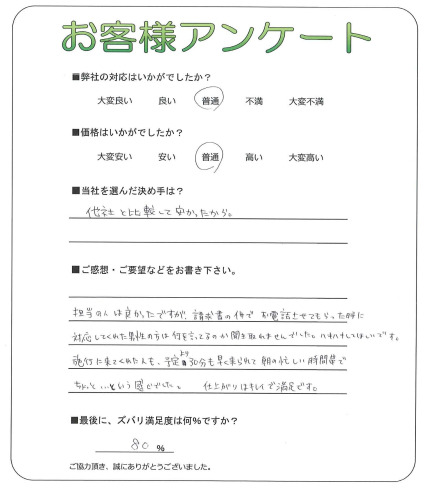 お客様アンケート
■弊社の対応はいかがでしたか？
大変良い 良い 普通 不満 大変不満
■価格はいかがでしたか？
大変安い 安い 普通 高い 大変高い
■当社を選んだ決め手は？
他社と比較して安かったから。
■ご感想・ご要望などをお書き下さい。
担当の人は良かったですが、請求書の件でお電話させてもらった時に
対応してくれた男性の方は何を言ってるのか聞き取れませんでした。ハキハキしてほしいです。
施行に来てくれた人も、予定より30分も早く来られて朝の忙しい時間帯で
ちょっと…という感じでした。 仕上がりはキレイで満足です。
■最後に、ズバリ満足度は何%ですか？
80 %
ご協力頂き、誠にありがとうございました。